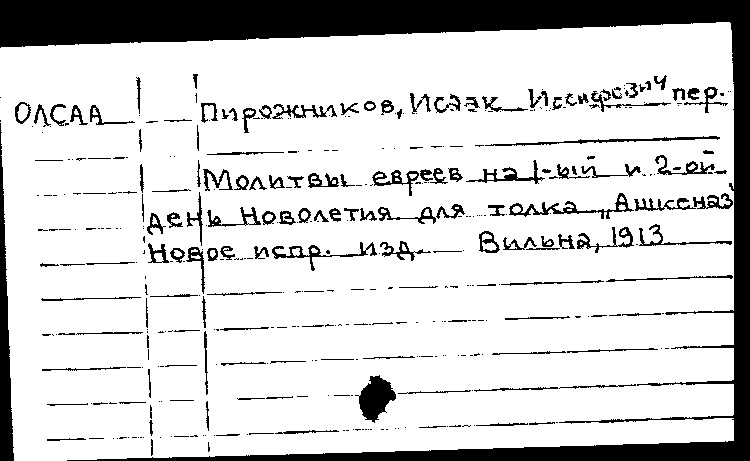 ОЛСАА Пирожников, Исаак Иосифович пер.
Молитвы евреев на 1-ый и 2-ой
день Новолетия для толка „Ашкеназ"
Новое испр. изд. Вильна, 1913